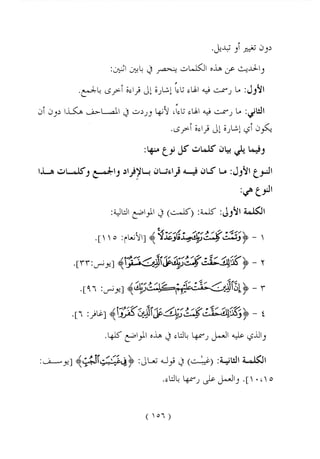 دون تغيير أو تبديل.
والحديث عن هذه الكلمات ينحصر في بابين اثنين:
الأول: ما رسمت فيه الهاء تاءً إشارة إلى قراءة أخرى بالجمع.
الثاني: ما رسمت فيه الهاء تاءً، لأنها وردت في المصاحف هكذا دون أن
يكون أي إشارة إلى قراءة أخرى.
وفيما يلي بيان كلمات كل نوع منها:
النوع الأول: ما كان فيه قراءتان بالإفراد والجمع وكلمات هذا
النوع هي:
الكلمة الأولى: كلمة: (كلمت) في المواضع التالية:
١ - ﴿وَتَمَّتْ كَلِمَتُ رَبِّكَ صِدْقًا وَعَدْلًا﴾ [الأنعام: ١١٥].
٢ - ﴿كَذَٰلِكَ حَقَّتْ كَلِمَتُ رَبِّكَ عَلَى الَّذِينَ فَسَقُوا﴾ [يونس: ٣٣].
٣ - ﴿إِنَّ الَّذِينَ حَقَّتْ عَلَيْهِمْ كَلِمَتُ رَبِّكَ﴾ [يونس: ٩٦].
٤ - ﴿وَكَذَٰلِكَ حَقَّتْ كَلِمَتُ رَبِّكَ عَلَى الَّذِينَ كَفَرُوا﴾ [غافر: ٦].
والذي عليه العمل رسمها بالتاء في هذه المواضع كلها.
الكلمة الثانية: (غيبت) في قوله تعالى: ﴿فِي غَيَابَتِ الْجُبِّ﴾ [يوسف:
١٠،١٥]. والعمل على رسمها بالتاء.
(١٥٦)